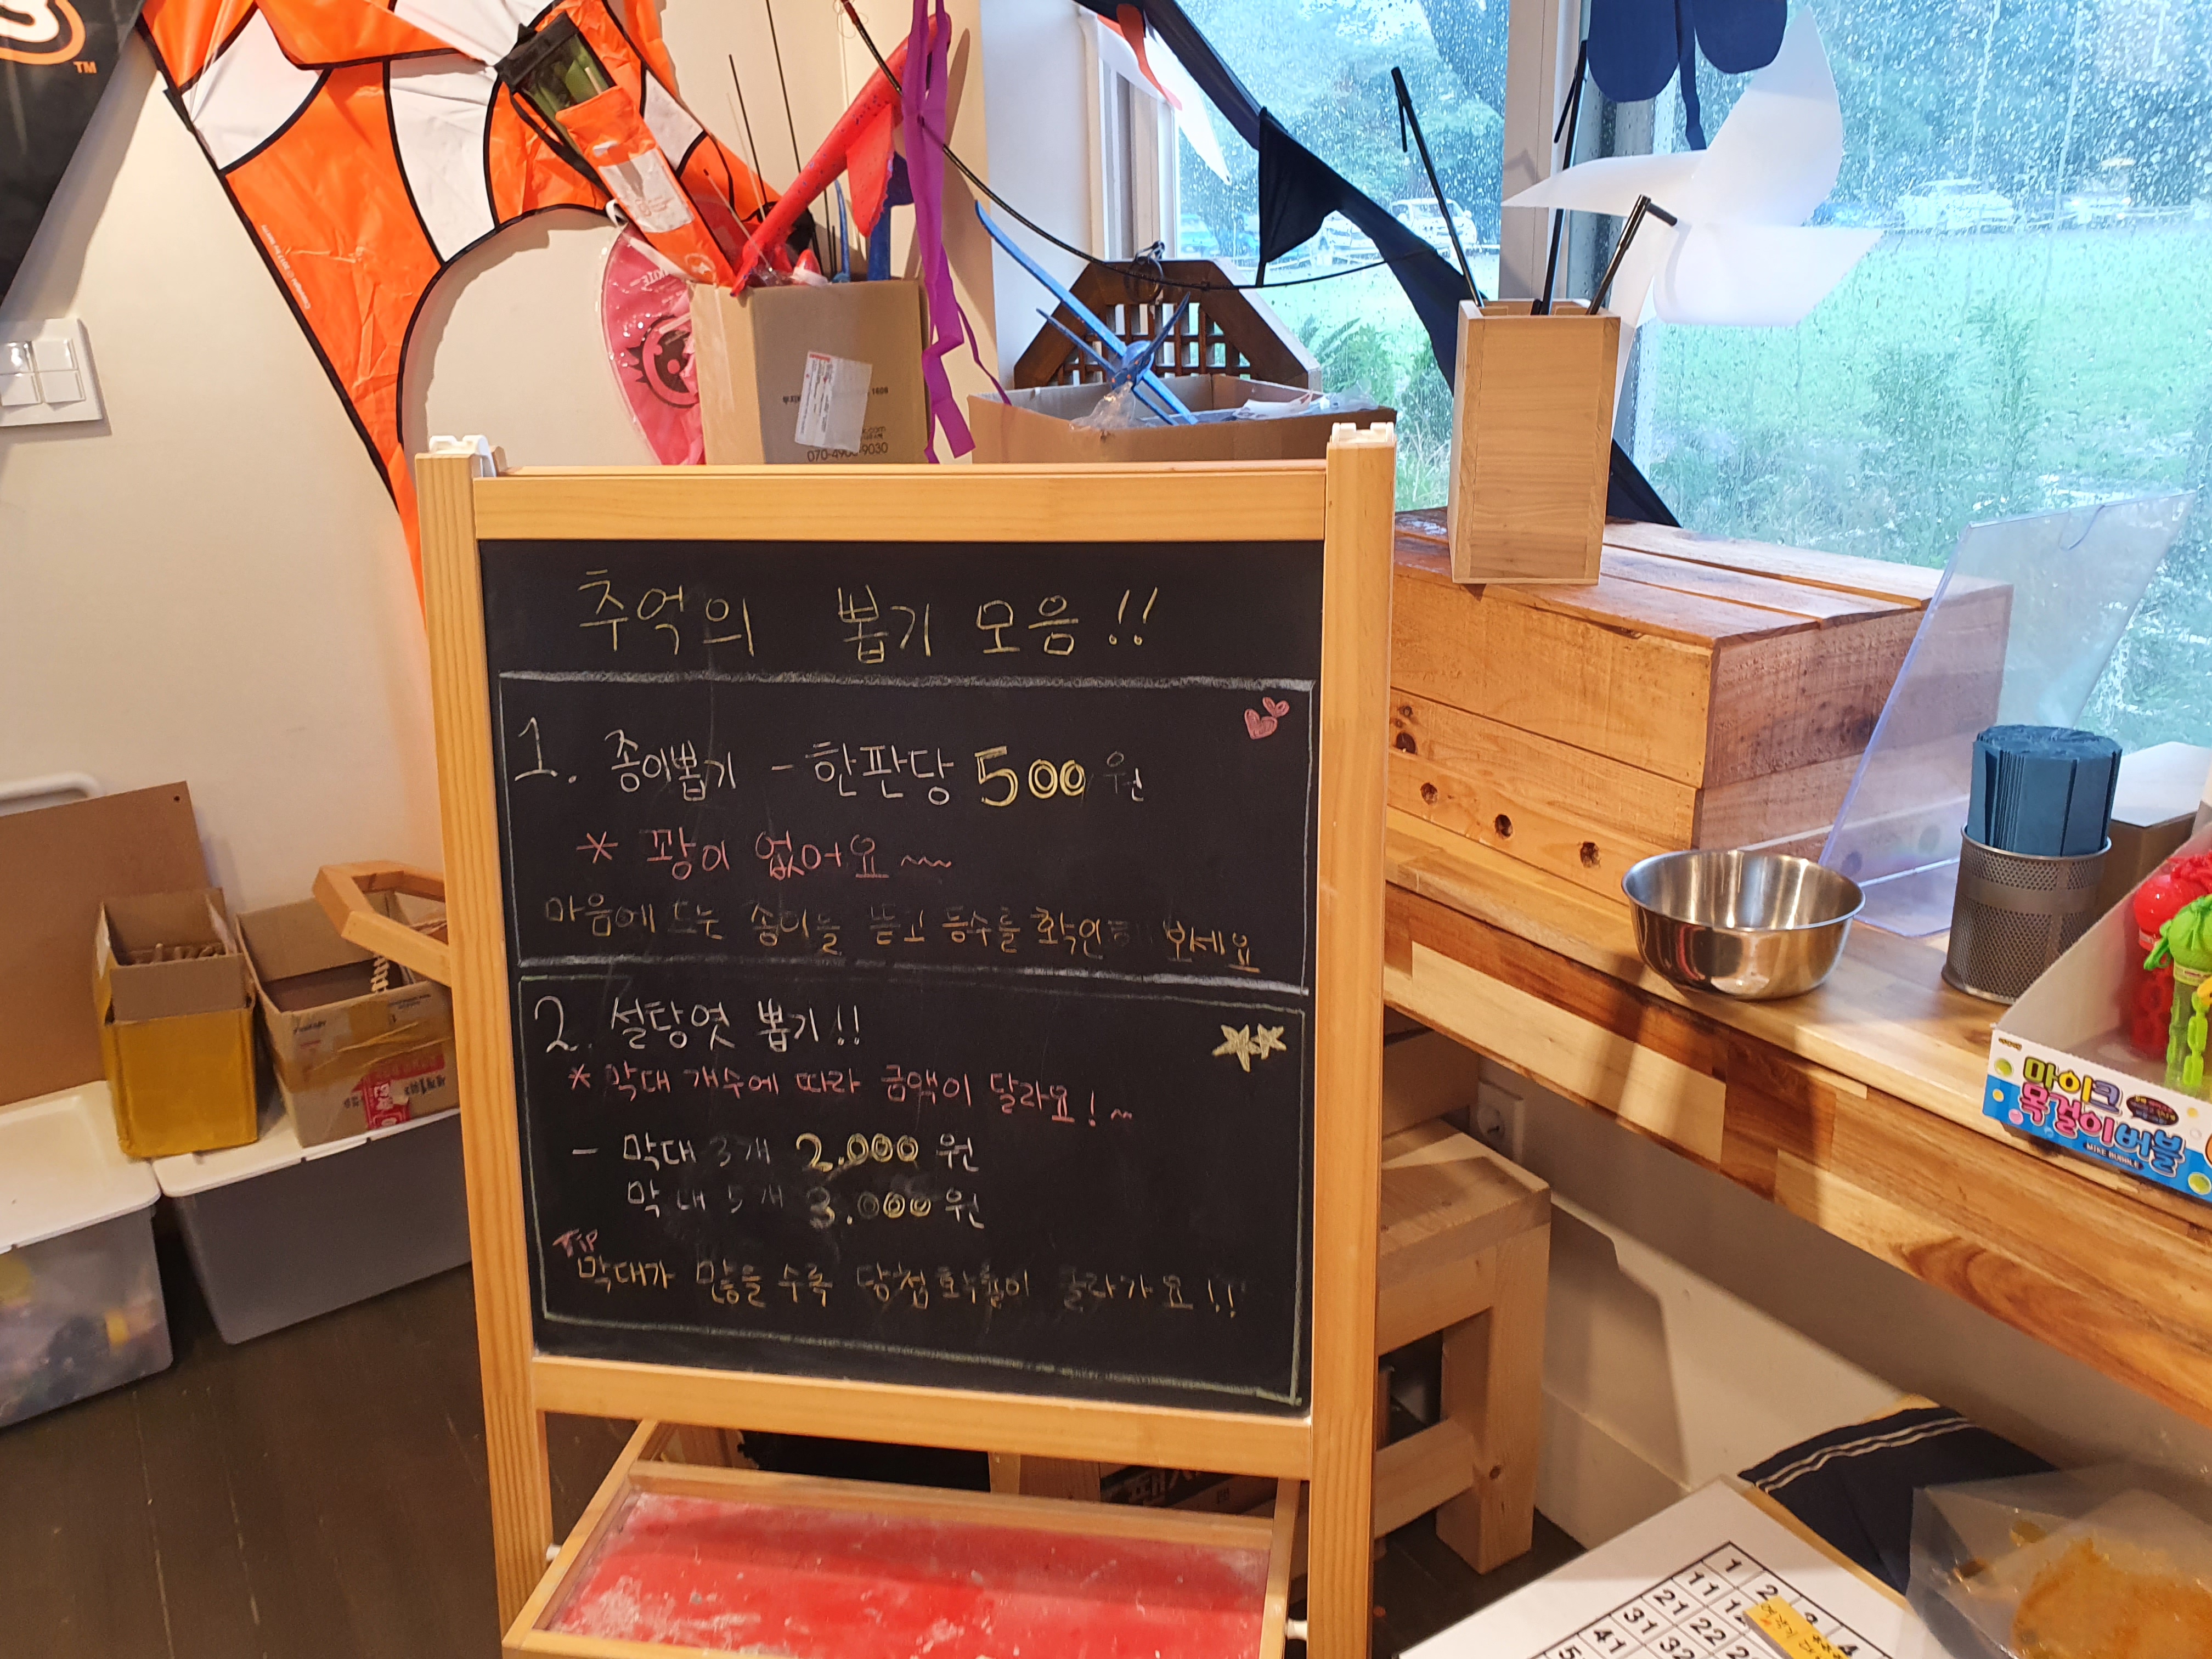 추억의 뽑기 모음!!
1. 종이뽑기 - 한판당 500 원
* 꽝이 없어요~~
마음에 드는 종이를 뜯고 등수를 확인해 보세요
2. 설탕엿 뽑기!!
* 막대 개수에 따라 금액이 달라요!~
- 막대 3개 2.000 원
막대 5개 3.000 원
TIP
막대가 많을 수록 당첨확률이 올라가요!!
TM
070-4900-9030
마이크
목걸이버블
MIKE BUBBLE
1 2 3 4
11 12
21 22
31 32
41